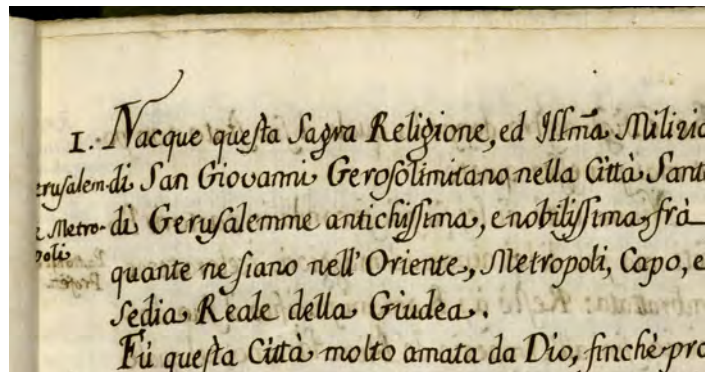 1. Nacque questa Sagra Religione, ed Illma Milizia
di San Giovanni Gerosolimitano nella Città Sant
di Gerusalemme antichissima, e nobilissima frà
quante ne siano nell' Oriente, Metropoli, Capo, e
Sedia Reale della Giudea.
Fù questa Città molto amata da Dio, finchè pro
erusalem
e Metro-
poli